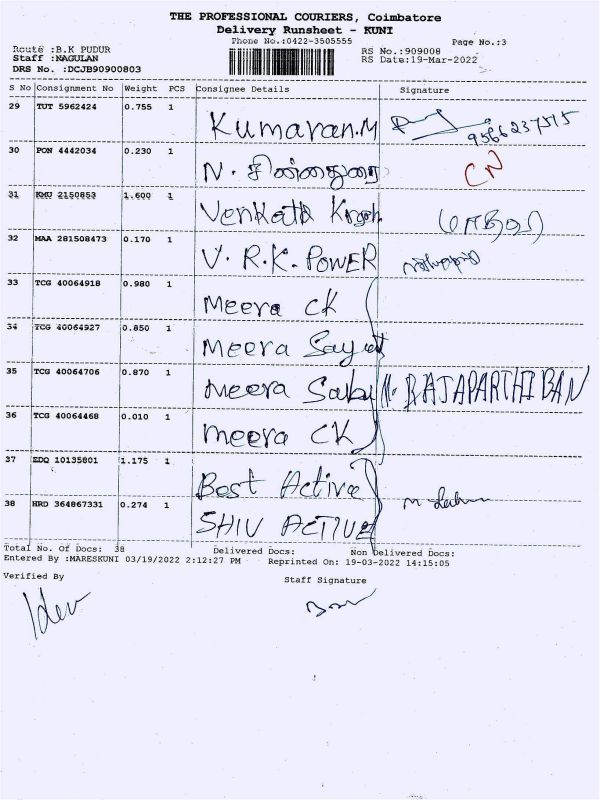 THE PROFESSIONAL COURIERS, Coimbatore
Delivery Runsheet - KUNI
Phone No.:0422-3505555
Page No.:3
Route :B.K PUDUR
RS No.:909008
Staff :NAGULAN
RS Date:19-Mar-2022
DRS No. :DCJB90900803
S No Consignment No Weight PCS Consignee Details Signature
29 TUT 5962424 0.755 1
Kumaran.M 9566237515
30 PON 4442034 0.230 1
N. சின்னதுரை CN
31 KMU 2150853 1.600 1
Venkata
32 MAA 281508473 0.170 1
V. R.K. POWER
33 TCG 40064918 0.980 1
Meera CK
34 TCG 40064927 0.850 1
Meera
35 TCG 40064706 0.870 1
Meera M. RAJAPARTHIBAN
36 TCG 40064468 0.010 1
Meera CK
37 EDQ 10135801 1.175 1
Best Active
38 HRD 364867331 0.274 1
SHIV ACTIVE
Total No. Of Docs: 38 Delivered Docs: Non Delivered Docs:
Entered By :MARESKUNI 03/19/2022 2:12:27 PM Reprinted On: 19-03-2022 14:15:05
Verified By Staff Signature